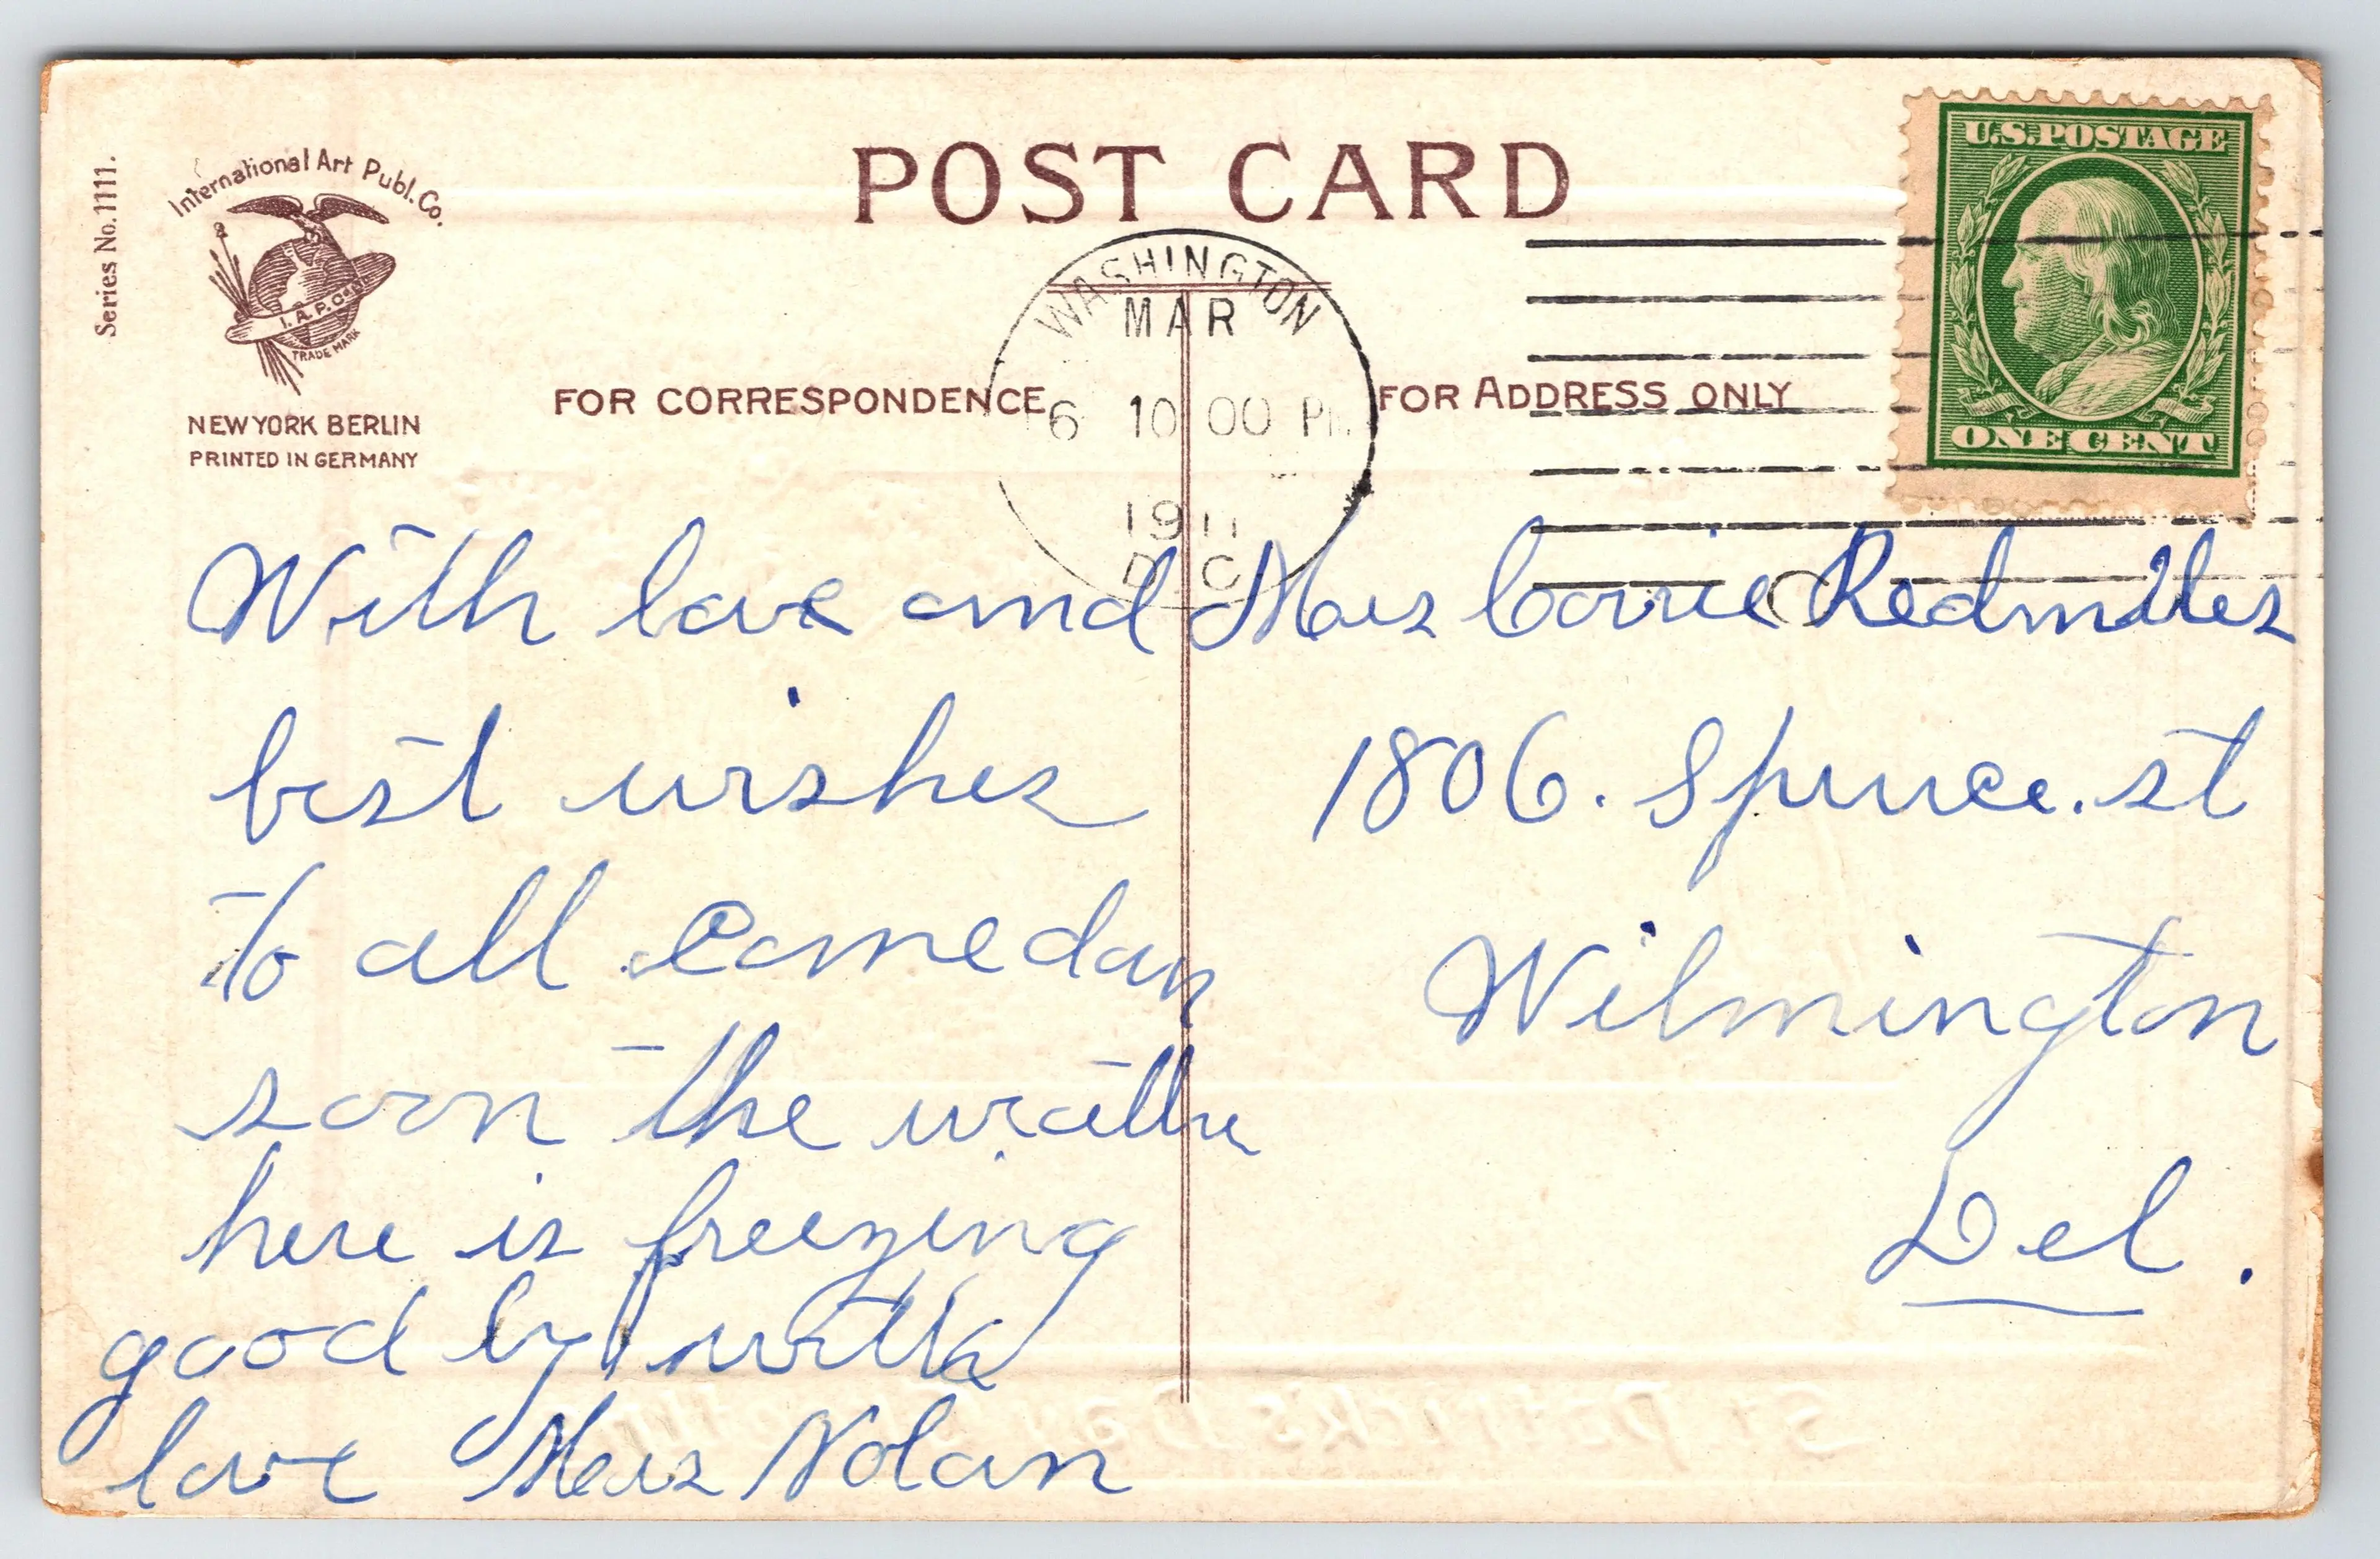 Series No. 1111.
International Art Publ. Co.
I. A. P. Co.
TRADE MARK
NEW YORK BERLIN
PRINTED IN GERMANY
POST CARD
FOR CORRESPONDENCE
FOR ADDRESS ONLY
WASHINGTON
MAR
6 10 00 P
1911
D. C.
U.S. POSTAGE
ONE CENT
With love and
best wishes
to all Come
soon the
here is freezing
good by with
love Nolan
Carrie Redmiles
1806. Spruce. st
Wilmington
Del.
St Patrick's Day